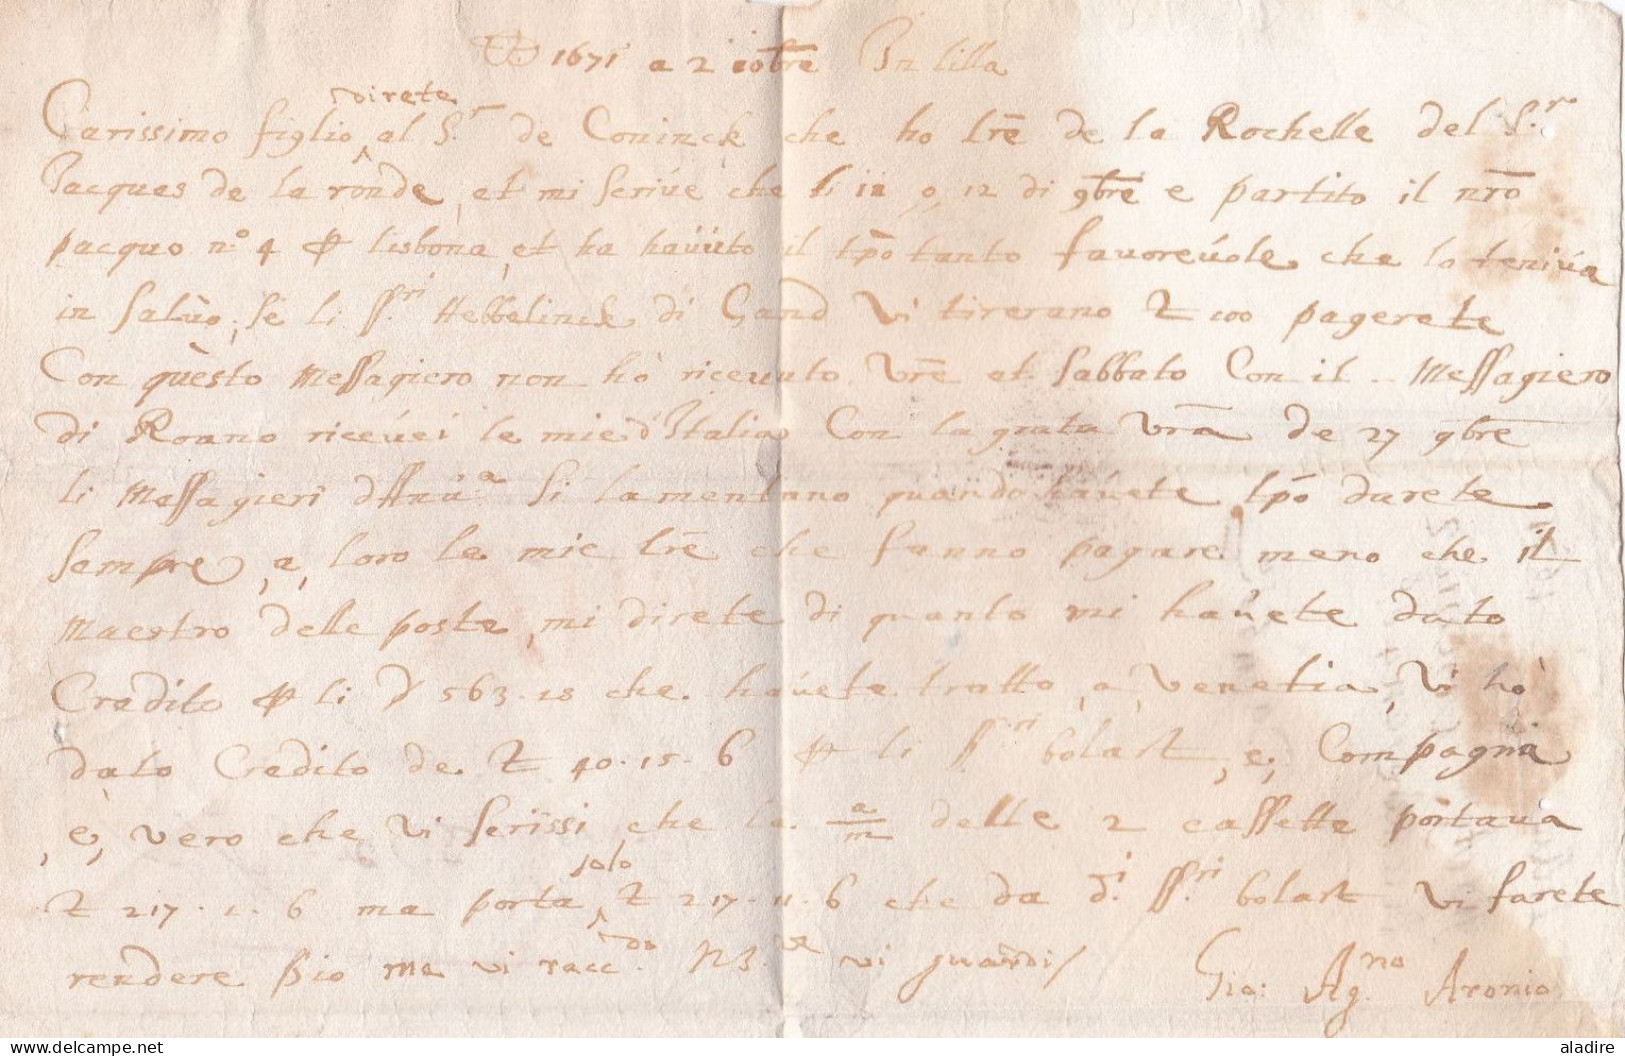 1671 a 2 10bre In lilla
direte
Carissimo figlio al S.r de Coninck che ho lre de la Rochelle del S.r
Jacques de la ronde, et mi scrive che li 11 o, 12 di 9bre e partito il nro
pacquo n.o 4 lisbona, et ha havuto il tpo tanto favorevole che lo teniva
in salvo, se li ss.ri Hebbelinck di Gand vi tirerano 100 pagerete
Con questo messagiero non ho ricevuto vre et sabbato Con il messagiero
di Roano ricevei le mie d'Italia Con la grata vra de 27 9bre
li messagieri si lamentano quando havete tpo darete
sempre, a, loro le mie lre che fanno pagare meno che il
maestro delle poste, mi direte di quanto mi havete dato
Credito li 563.18 che havete tratto, a, venetia, vi ho
dato Credito de 40.15.6 li ss.ri bolart, e, Compagnia
, e, vero che vi scrissi che la a/m delle 2 cassette portava
solo
217.1.6 ma porta 217.11.6 che da d.i ss.ri bolart vi farete
rendere me vi racc.do vi guardi Gio: Ag.no Aronio
aladire